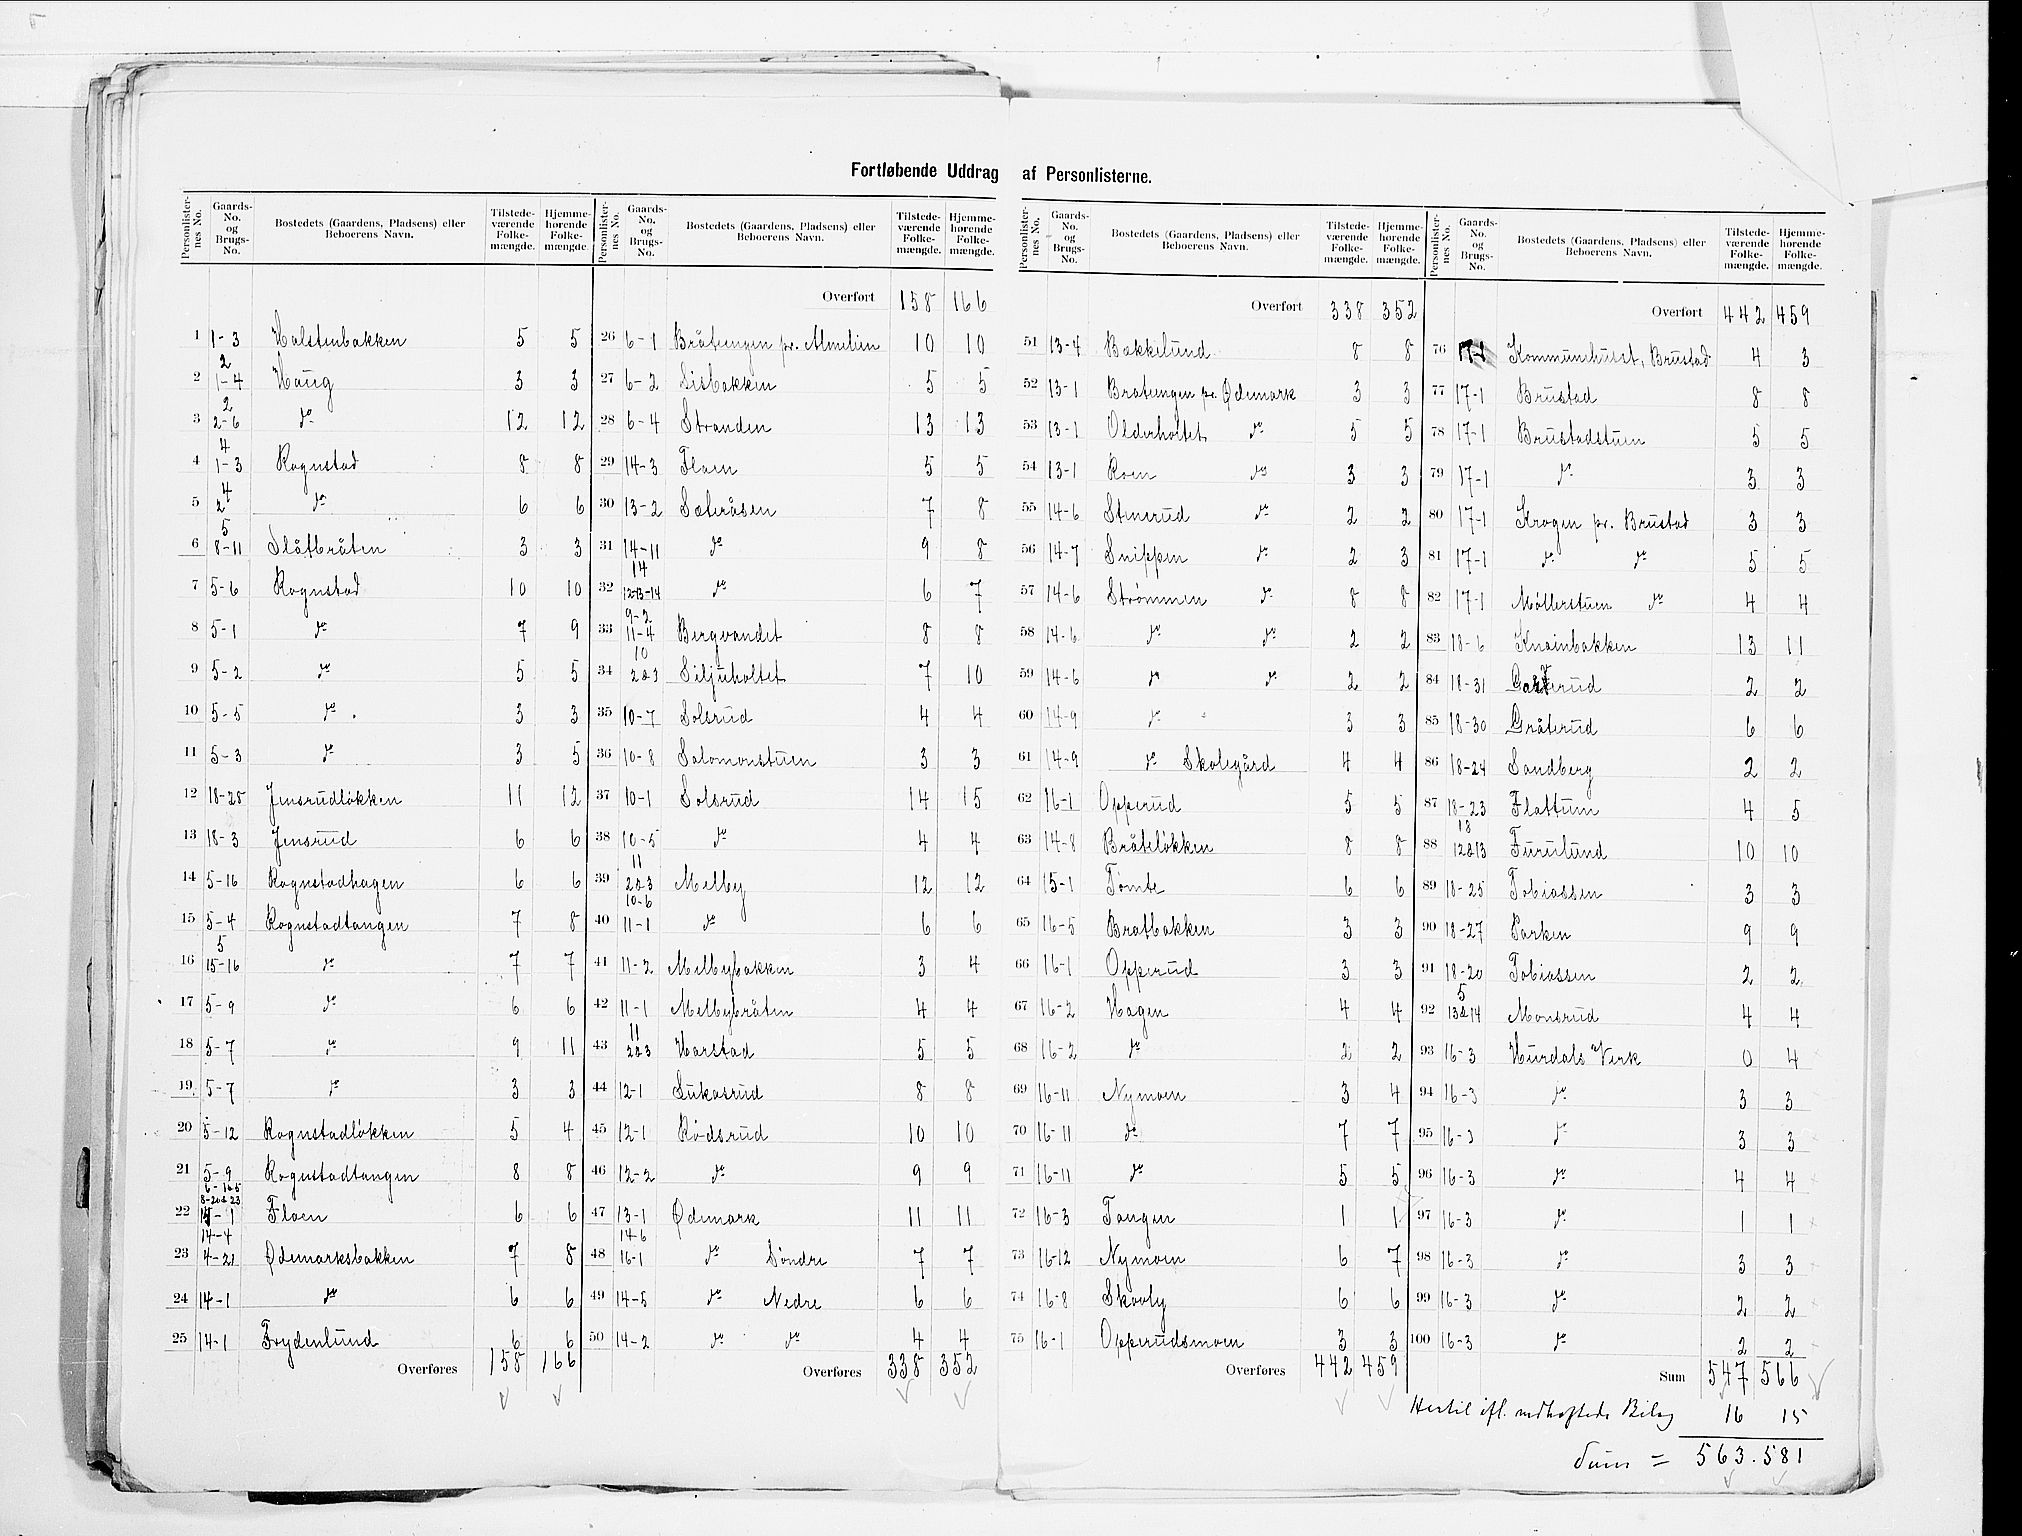 Fortløbende Uddrag af Personlisterne.
Personlisternes No. Gaards-No. og Brugs-No. Bostedets (Gaardens, Pladsens) eller Beboerens Navn. Tilstedeværende Folkemængde. Hjemmehørende Folkemængde.
1 1-3 Halstenbakken 5 5
2 2 1-4 Haug 3 3
3 2 2-6 do 12 12
4 4 1-3 Rognstad 8 8
5 4 2 do 6 6
6 5 8-11 Slåtbråten 3 3
7 5-6 Rognstad 10 10
8 5-1 do 7 9
9 5-2 do 5 5
10 5-5 do 3 3
11 5-3 do 3 5
12 18-25 Jensrudløkken 11 12
13 18-3 Jensrud 6 6
14 5-16 Rognstadhagen 6 6
15 5-4 Rognstadtangen 7 8
16 5 15-16 do 7 7
17 5-9 do 6 6
18 5-7 do 9 11
19 5-7 do 3 3
20 5-12 Rognstadløkken 5 4
21 5-9 Rognstadtangen 8 8
22 Floen 6 6
23 14-4 4-21 Ødemarksbakken 7 8
24 14-1 do 6 6
25 14-1 Frydenlund 6 6
Overføres 158 166
Personlisternes No. Gaards-No. og Brugs-No. Bostedets (Gaardens, Pladsens) eller Beboerens Navn. Tilstedeværende Folkemængde. Hjemmehørende Folkemængde.
Overført 158 166
26 6-1 Bråtengen pr. Almelien 10 10
27 6-2 Lisbakken 5 5
28 6-4 Stranden 13 13
29 14-3 Floen 5 5
30 13-2 Sæteråsen 7 8
31 14-11 do 9 8
32 14 12-13-14 do 6 7
33 9-2 11-4 Bergvandet 8 8
34 10 2&3 Siljuholtet 7 10
35 10-7 Solsrud 4 4
36 10-8 Salomonstuen 3 3
37 10-1 Solsrud 14 15
38 10-5 do 4 4
39 11 2&3 Melby 12 12
40 10-6 11-1 do 6 6
41 11-2 Melbybakken 3 4
42 11-1 Melbybråten 4 4
43 11 2&3 Harstad 5 5
44 12-1 Lukasrud 8 8
45 12-1 Rødsrud 10 10
46 12-2 do 9 9
47 13-1 Ødemark 11 11
48 14-6 16-1 do Søndre 7 7
49 14-5 do Nedre 6 6
50 14-2 do do 4 4
Overføres 338 352
Personlisternes No. Gaards-No. og Brugs-No. Bostedets (Gaardens, Pladsens) eller Beboerens Navn. Tilstedeværende Folkemængde. Hjemmehørende Folkemængde.
Overført 338 352
51 13-4 Bakkelund 8 8
52 13-1 Bratengen pr. Ødemark 3 3
53 13-1 Olderholtet do 5 5
54 13-1 Roen do 3 3
55 14-6 Stenerud do 2 2
56 14-7 Snippen do 2 3
57 14-6 Strømmen do 8 8
58 14-6 do do 2 2
59 14-6 do do 2 2
60 14-9 do 3 3
61 14-9 do Skolegård 4 4
62 16-1 Opperud 5 5
63 14-8 Bråteløkken 8 8
64 15-1 Tømte 6 6
65 16-5 Bratbakken 3 3
66 16-1 Opperud 3 3
67 16-2 Hagen 4 4
68 16-2 do 2 2
69 16-11 Nymoen 3 4
70 16-11 do 7 7
71 16-11 do 5 5
72 16-3 Tangen 1 1
73 16-12 Nymoen 6 7
74 16-8 Skovly 6 6
75 16-1 Opperudsmoen 3 3
Overføres 442 459
Personlisternes No. Gaards-No. og Brugs-No. Bostedets (Gaardens, Pladsens) eller Beboerens Navn. Tilstedeværende Folkemængde. Hjemmehørende Folkemængde.
Overført 442 459
76 17-1 Kommunehuset, Brustad 4 3
77 17-1 Brustad 8 8
78 17-1 Brustadstuen 5 5
79 17-1 do 3 3
80 17-1 Krogen pr. Brustad 3 3
81 17-1 do do 5 5
82 17-1 Møllerstuen do 4 4
83 18-6 Knainbakken 13 11
84 18-31 2 2
85 18-30 Gråterud 6 6
86 18-24 Sandberg 2 2
87 18-23 Flattum 4 5
88 18 12&13 Furulund 10 10
89 18-25 Tobiassen 3 3
90 18-27 Parken 9 9
91 18-20 Tobiassen 2 2
92 5 13&14 Monsrud 4 4
93 16-3 Hurdals Verk 0 4
94 16-3 do 3 3
95 16-3 do 3 3
96 16-3 do 4 4
97 16-3 do 1 1
98 16-3 do 3 3
99 16-3 do 2 2
100 16-3 do 2 2
Sum 547 566
Hertil ifl. vedhæftede Bilag 16 15
Sum = 563. 581